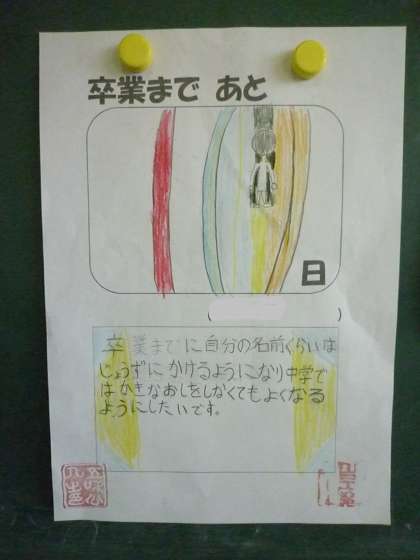 卒業まで あと
日
( )
卒業までに自分の名前くらいは
じょうずにかけるようになり中学で
はかきなおしをしなくてもよくなる
ようにしたいです。